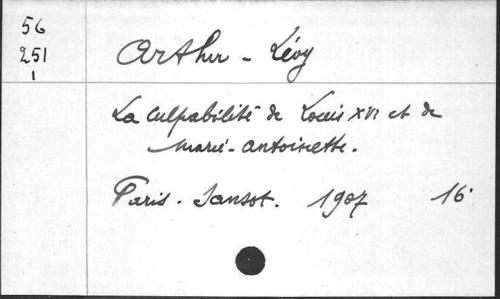 56
251
1
Arthur - Lévy
La Culpabilité de Louis XVI et de
Marie-Antoinette.
Paris. Sansot. 1907 16